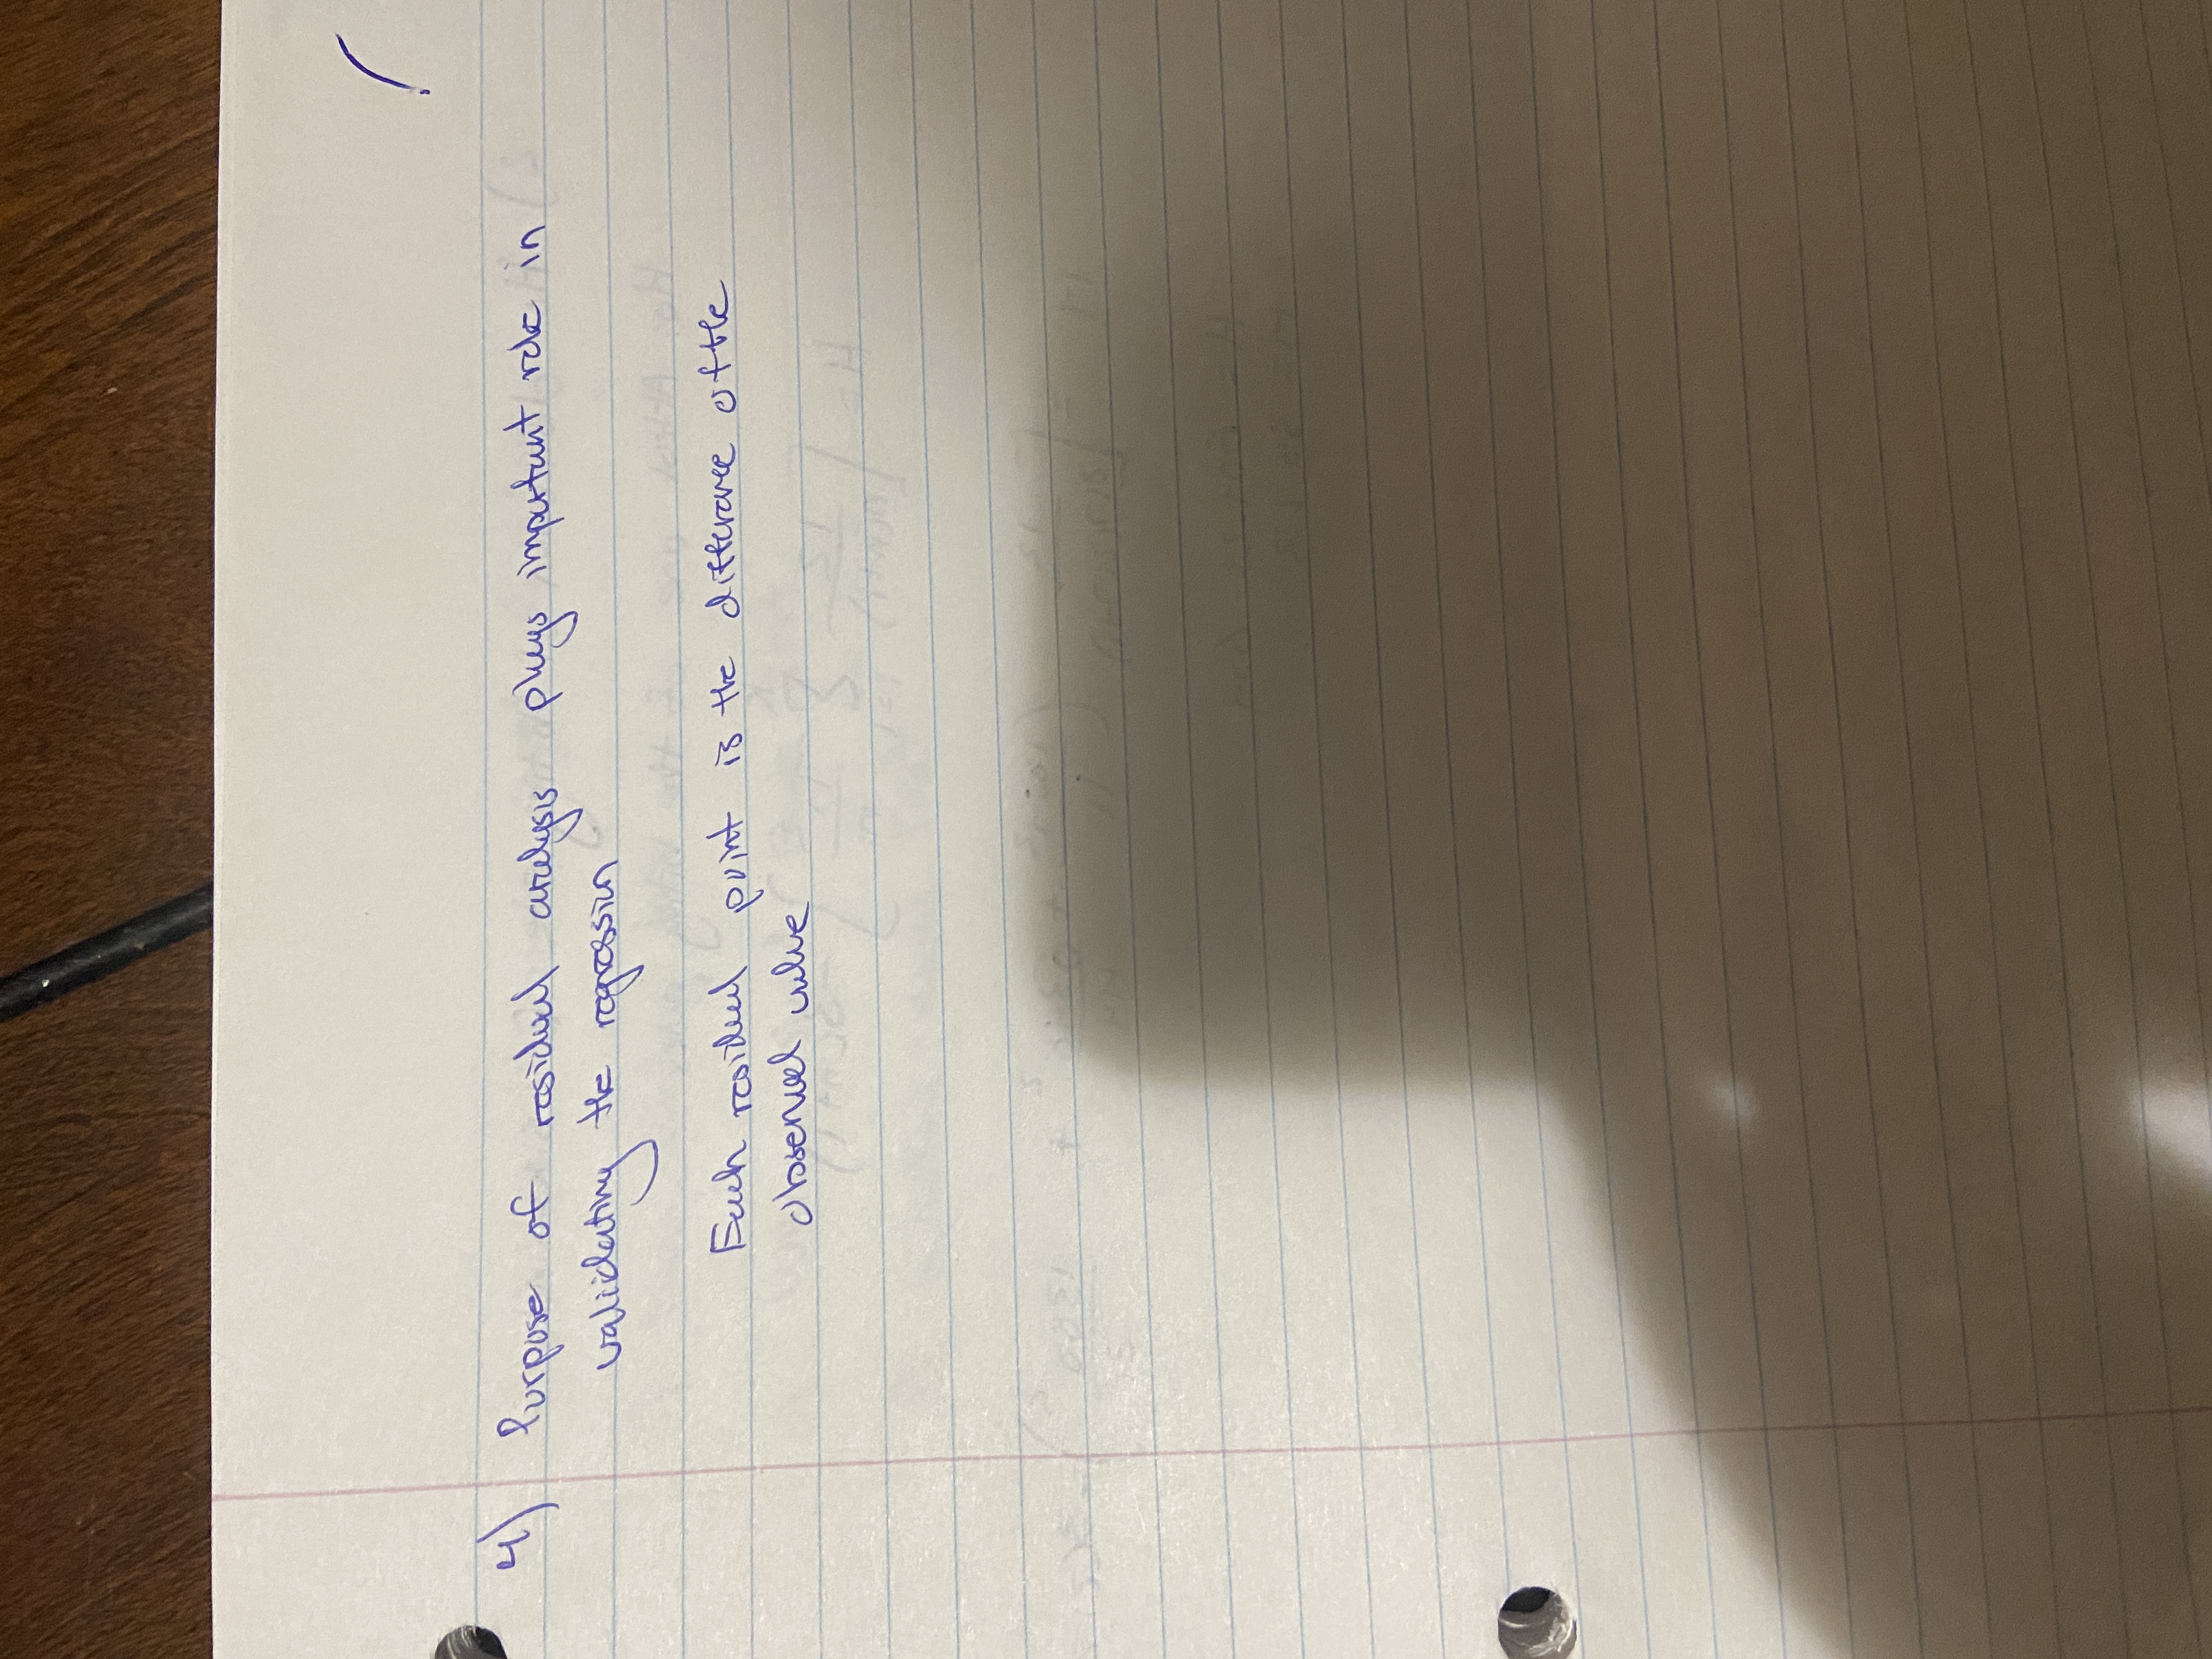 4) Purpose of residual analysis plays important role in
validating the regression
Each residual point is the difference of the
observed value